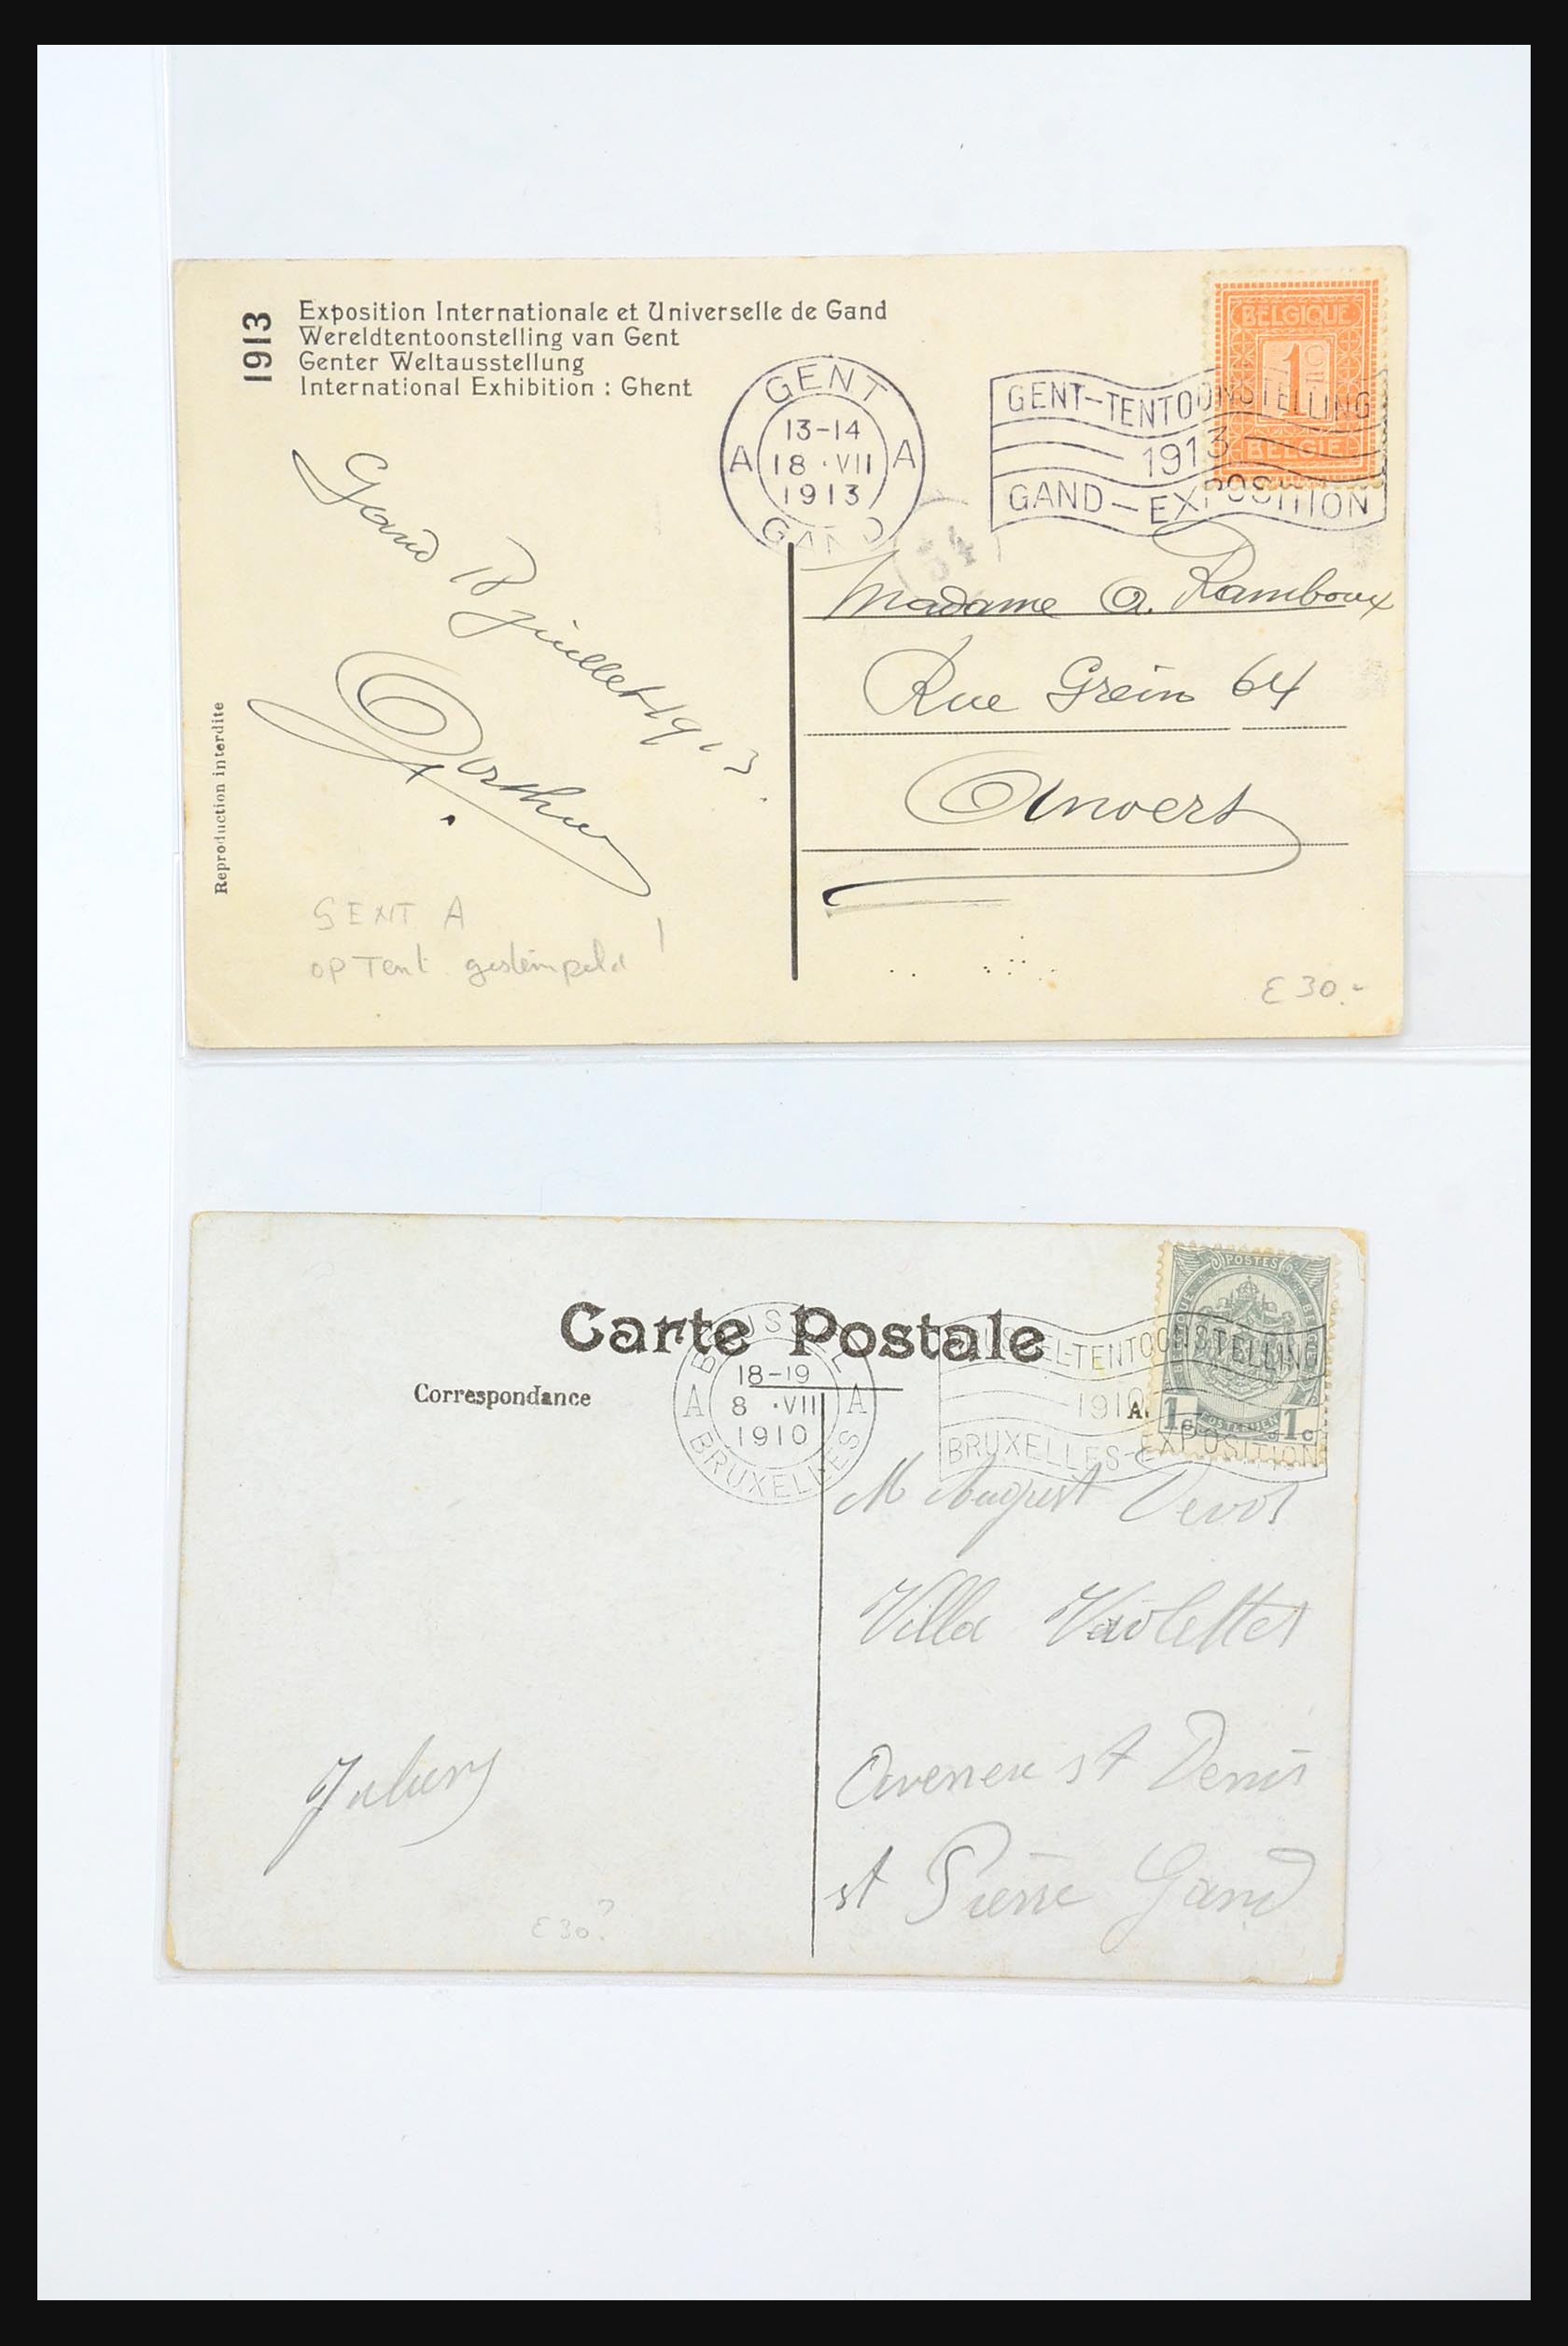 1913
Exposition Internationale et Universelle de Gand
Wereldtentoonstelling van Gent
Genter Weltausstellung
International Exhibition : Ghent
BELGIQUE
1c
BELGIË
GENT
A 13-14 A
18 · VII
1913
GAND
GENT-TENTOONSTELLING
1913
GAND-EXPOSITION
34
Gand 18 juillet 1913.
Arthur
Madame A. Ramboux
Rue Grein 64
Anvers
Reproduction interdite
GENT A
op Tent gestempeld !
E 30.-
Carte Postale
Correspondance
POSTES
1c 1c
POSTERIJEN
BRUSSEL
A 18-19 A
8 · VII
1910
BRUXELLES
BRUSSEL-TENTOONSTELLING
1910
BRUXELLES-EXPOSITION
A.
M August Devos
Villa Violettes
Avenue st Denis
st Pierre Gand
E 30?